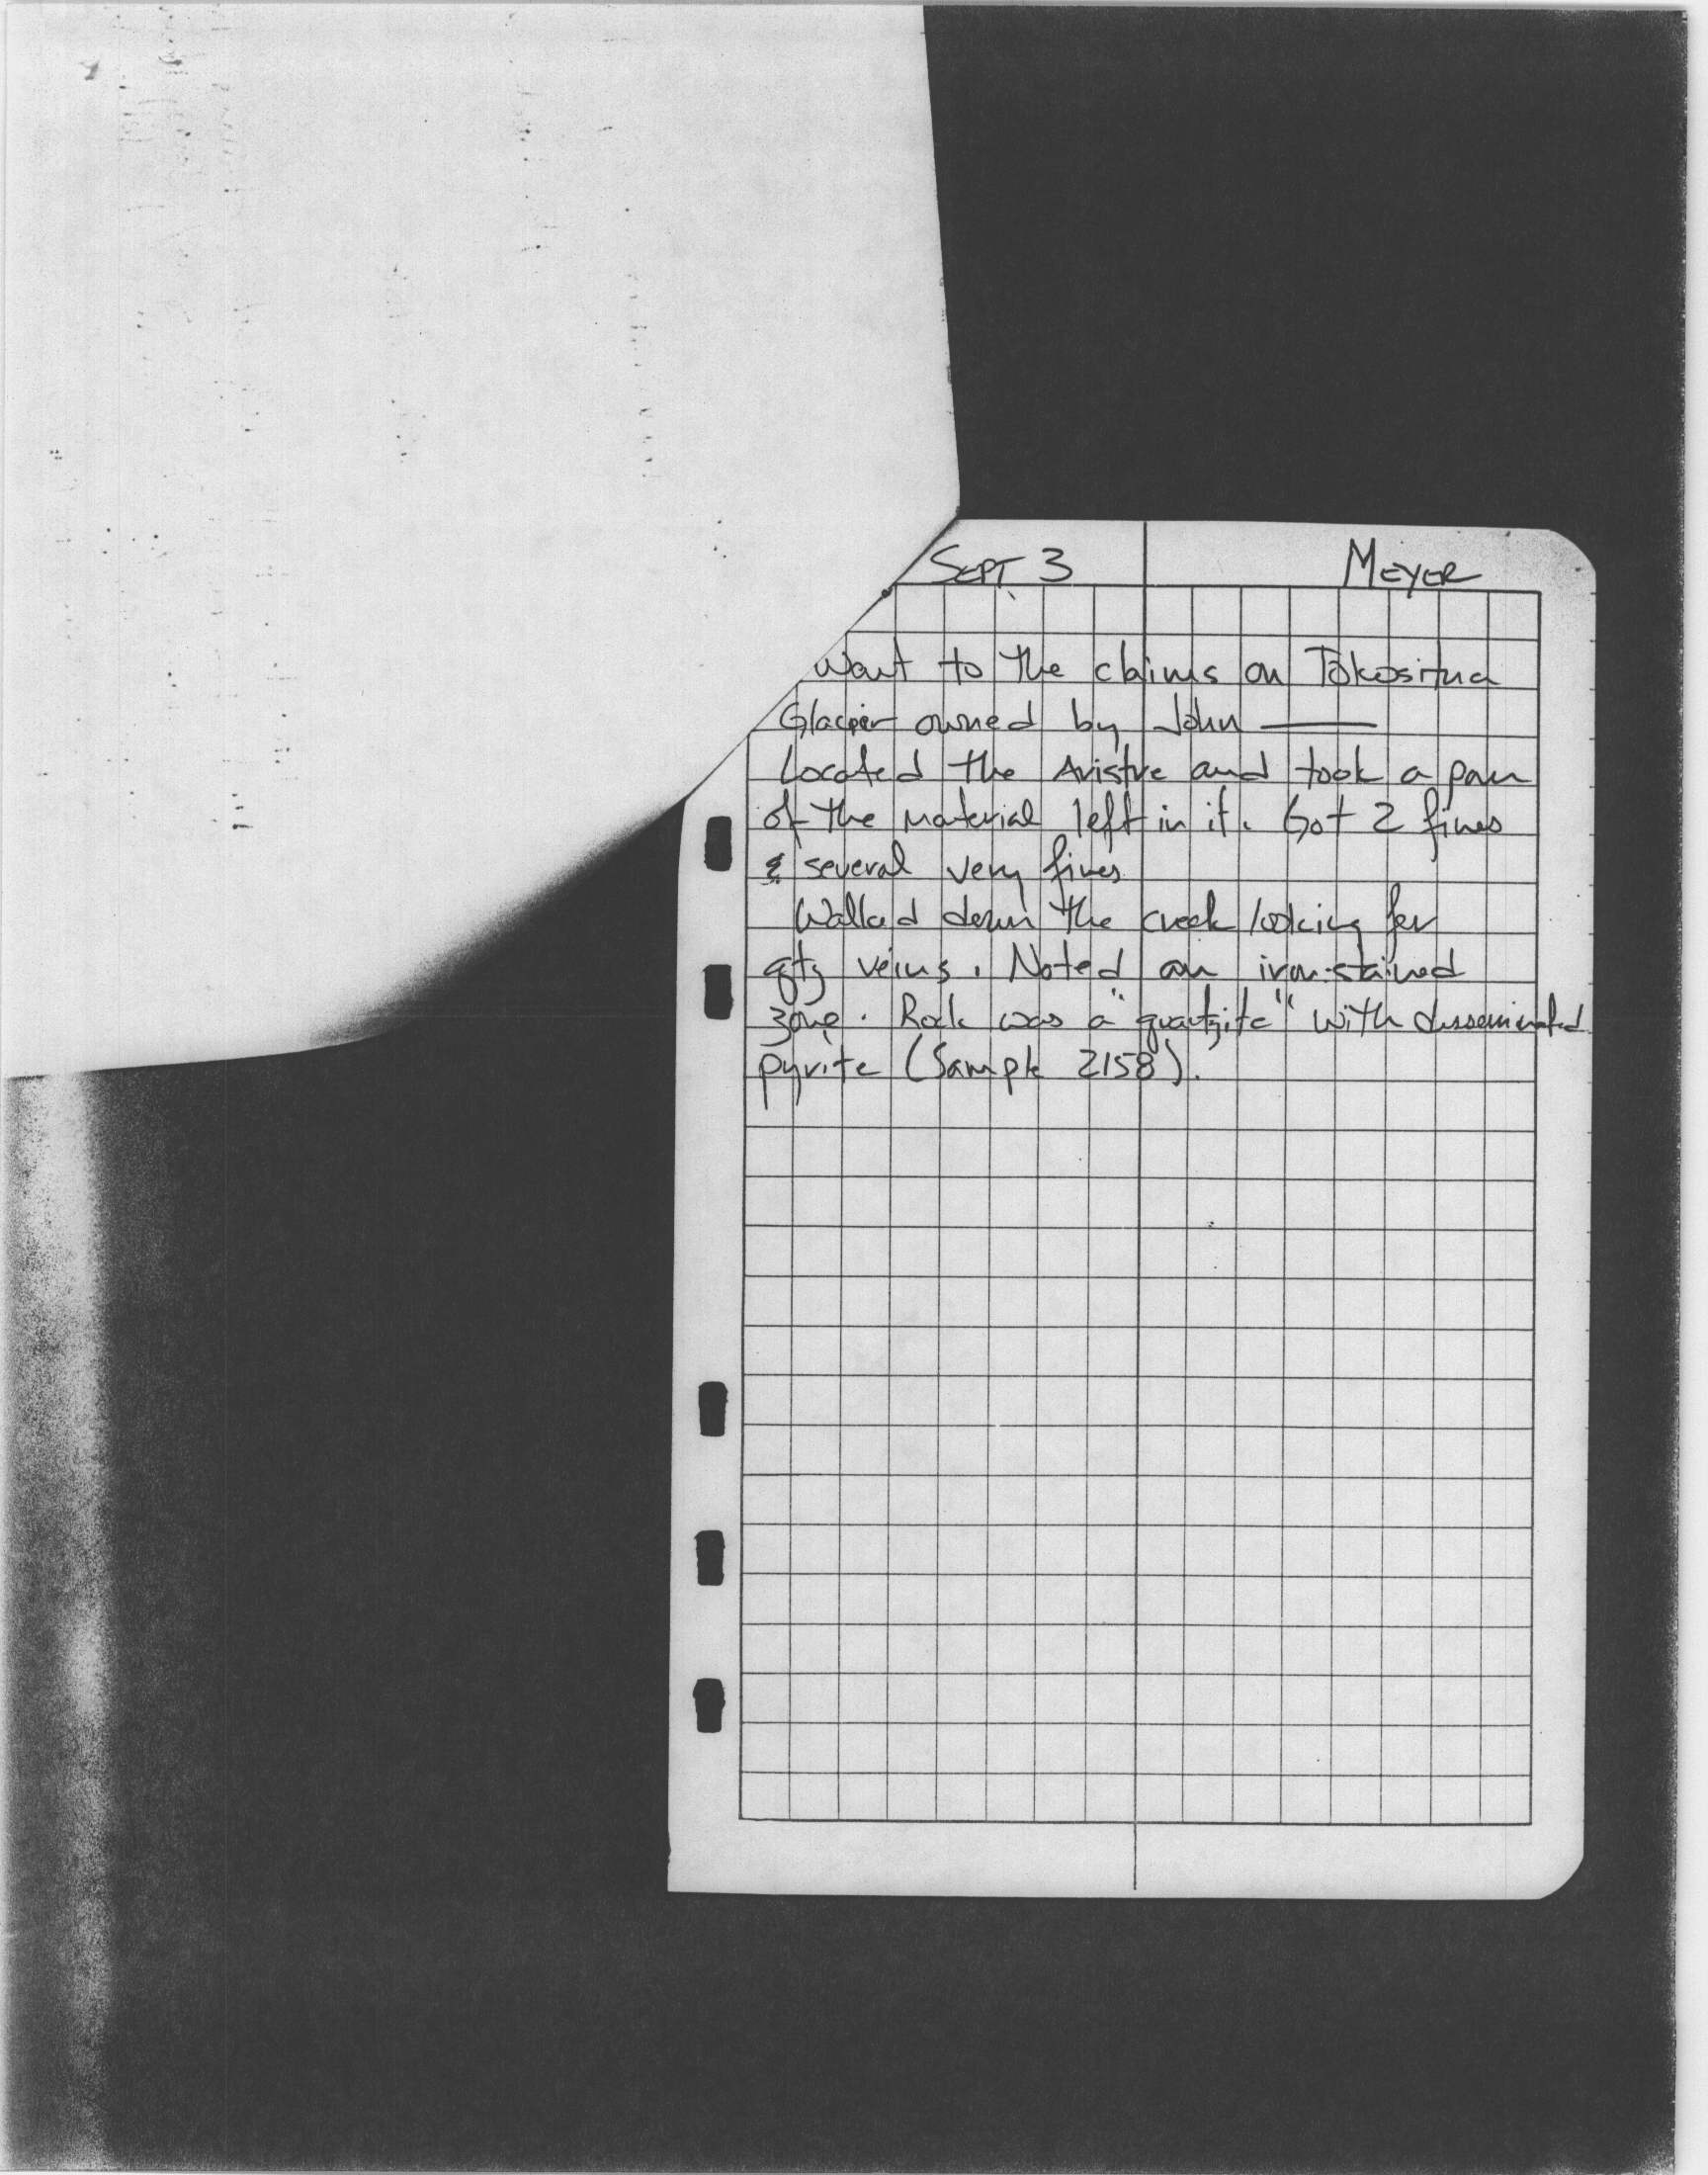 SEPT 3 MEYER
Went to the claims on Tokositna
Glacier owned by John ———
Located the Aristre and took a pan
of the material left in it. Got 2 fines
& several very fines
Walked down the creek looking for
qtz veins. Noted an iron-stained
zone. Rock was a "quartzite" with disseminated
pyrite (Sample 2158).